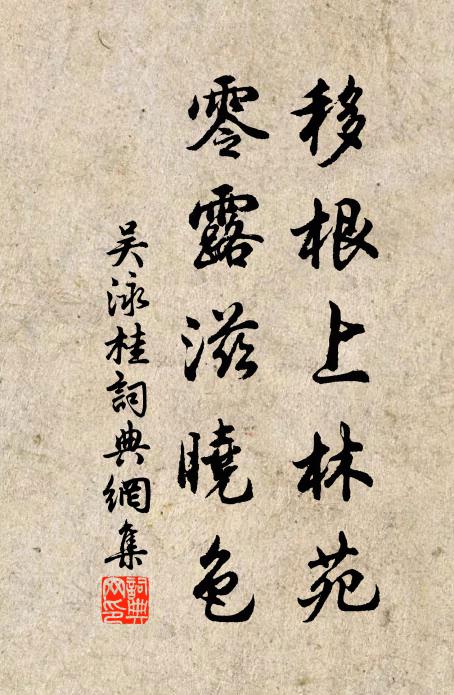 移根上林苑
零露滋曉色
吴泳桂詞典網集
詞典網印